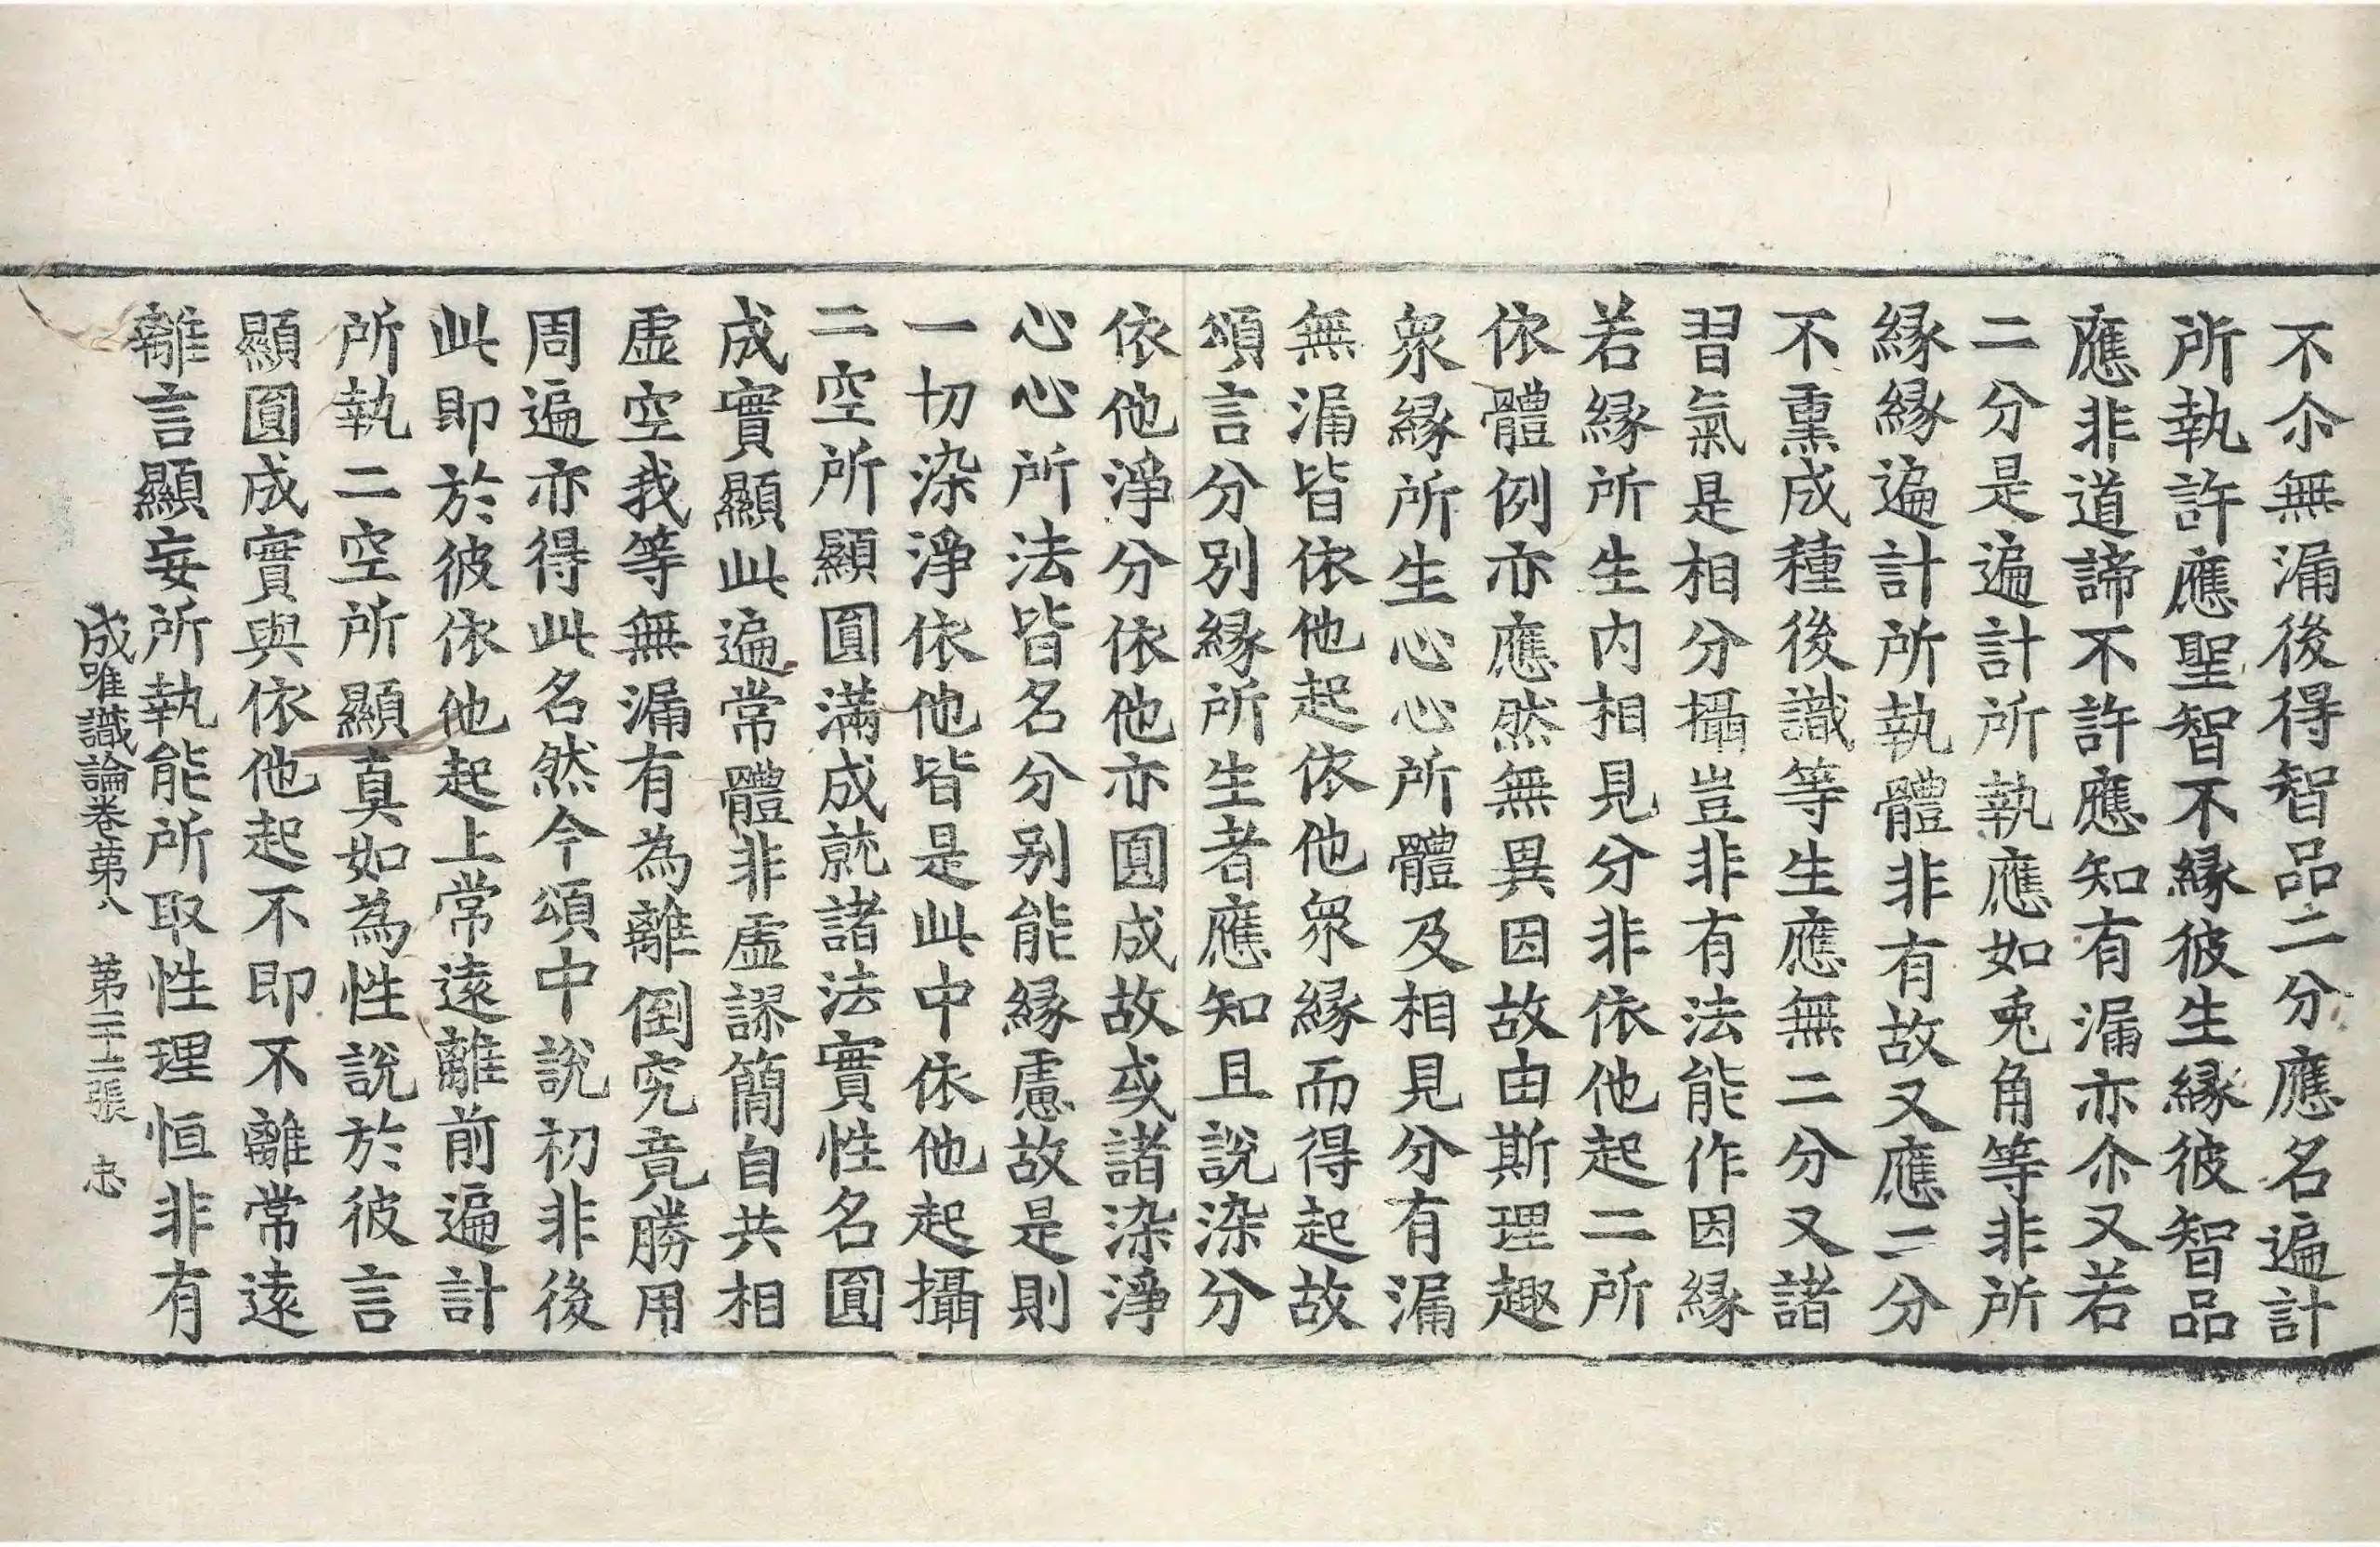 不尒無漏後得智品二分應名遍計
所執許應聖智不縁彼生縁彼智品
應非道諦不許應知有漏亦尒又若
二分是遍計所執應如兎角等非所
縁縁遍計所執體非有故又應二分
不熏成種後識等生應無二分又諸
習氣是相分攝豈非有法能作因縁
若縁所生内相見分非依他起二所
依體例亦應然無異因故由斯理趣
衆縁所生心心所體及相見分有漏
無漏皆依他起依他衆縁而得起故
頌言分別縁所生者應知且說染分
依他淨分依他亦圓成故或諸染淨
心心所法皆名分别能縁慮故是則
一切染淨依他皆是此中依他起攝
二空所顯圓滿成就諸法實性名圓
成實顯此遍常體非虛謬簡自共相
虛空我等無漏有為離倒究竟勝用
周遍亦得此名然今頌中說初非後
此即於彼依他起上常遠離前遍計
所執二空所顯真如為性說於彼言
顯圓成實與依他起不即不離常遠
離言顯妄所執能所取性理恒非有
成唯識論卷第八 第二十二張 忠